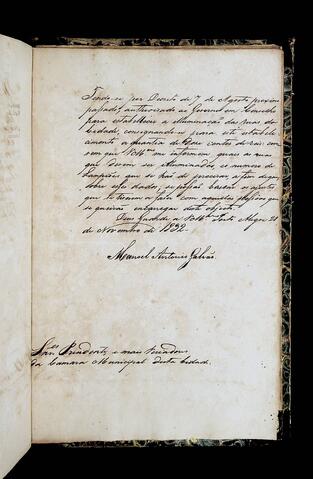 Tendo-se por Decreto de 7 de Agosto proximo
passado, authorisado ao Governo em Conselho
para estabelecer a illuminação das ruas da
Cidade, consignando-se para este estabele-
cimento a quantia de contos de reis
sem que V.Mces me informem quaes as ruas
que devem ser illuminadas, e numero de
Lampiões que se hão de precisar, a fim de que
sobre estes dados, se possão basear os ajustes
que se tiverem a fazer com aquellas pessoas que
se queirão encarregar deste objecto.
Deus Guarde a V.Mces Porto Alegre 21
de Novembro de 1832
Manoel Antonio Galvão.
Snres Prezidente, e mais Vereadores
da Camara Municipal desta Cidade.